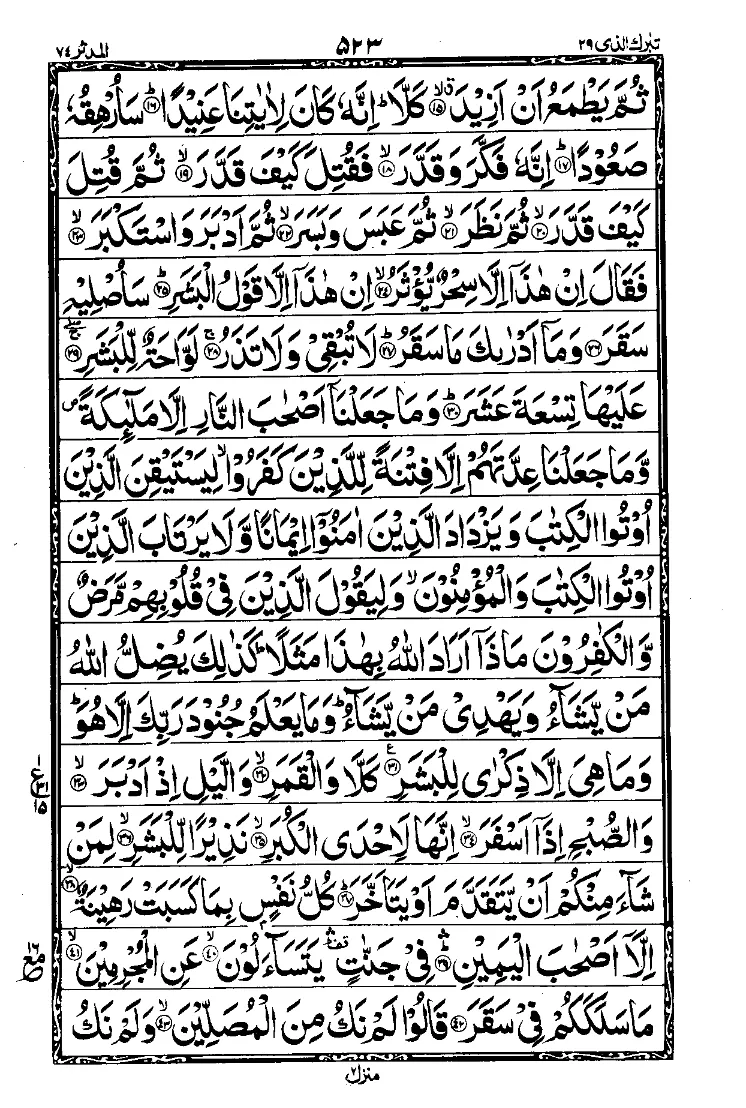 تبٰرك الذی ۲۹ ۵۲۳ المدثر ۷۴
ثُمَّ يَطْمَعُ اَنْ اَزِيْدَ ۙ‏ۗ ﴿۱۵﴾ كَلَّا ؕ اِنَّهٗ كَانَ لِاٰيٰتِنَا عَنِيْدًا ؕ﴿۱۶﴾ سَاُرْهِقُهٗ
صَعُوْدًا ؕ﴿۱۷﴾ اِنَّهٗ فَكَّرَ وَ قَدَّرَ ۙ﴿۱۸﴾ فَقُتِلَ كَيْفَ قَدَّرَ ۙ﴿۱۹﴾ ثُمَّ قُتِلَ
كَيْفَ قَدَّرَ ۙ﴿۲۰﴾ ثُمَّ نَظَرَ ۙ﴿۲۱﴾ ثُمَّ عَبَسَ وَبَسَرَ ۙ﴿۲۲﴾ ثُمَّ اَدْبَرَ وَاسْتَكْبَرَ ۙ﴿۲۳﴾
فَقَالَ اِنْ هٰذَاۤ اِلَّا سِحْرٌ يُّؤْثَرُ ۙ﴿۲۴﴾ اِنْ هٰذَاۤ اِلَّا قَوْلُ الْبَشَرِ ؕ﴿۲۵﴾ سَاُصْلِيْهِ
سَقَرَ ﴿۲۶﴾ وَمَاۤ اَدْرٰىكَ مَا سَقَرُ ؕ﴿۲۷﴾ لَا تُبْقِىْ وَلَا تَذَرُ ۚ﴿۲۸﴾ لَوَّاحَةٌ لِّلْبَشَرِ ۚۖ﴿۲۹﴾
عَلَيْهَا تِسْعَةَ عَشَرَ ؕ﴿۳۰﴾ وَمَا جَعَلْنَاۤ اَصْحٰبَ النَّارِ اِلَّا مَلٰٓٮِٕكَةً ۖ
وَّمَا جَعَلْنَا عِدَّتَهُمْ اِلَّا فِتْنَةً لِّلَّذِيْنَ كَفَرُوْا ۙ لِيَسْتَيْقِنَ الَّذِيْنَ
اُوْتُوا الْكِتٰبَ وَيَزْدَادَ الَّذِيْنَ اٰمَنُوْۤا اِيْمَانًا وَّلَا يَرْتَابَ الَّذِيْنَ
اُوْتُوا الْكِتٰبَ وَالْمُؤْمِنُوْنَ ۙ وَلِيَقُوْلَ الَّذِيْنَ فِىْ قُلُوْبِهِمْ مَّرَضٌ
وَّالْكٰفِرُوْنَ مَاذَاۤ اَرَادَ اللّٰهُ بِهٰذَا مَثَلًا ؕ كَذٰلِكَ يُضِلُّ اللّٰهُ
مَنْ يَّشَآءُ وَيَهْدِىْ مَنْ يَّشَآءُ ؕ وَمَا يَعْلَمُ جُنُوْدَ رَبِّكَ اِلَّا هُوَ ؕ
وَمَا هِىَ اِلَّا ذِكْرٰى لِلْبَشَرِ ﴿۳۱﴾ع كَلَّا وَالْقَمَرِ ۙ﴿۳۲﴾ وَالَّيْلِ اِذْ اَدْبَرَ ۙ﴿۳۳﴾
۱ ع ۳۱ ۱۵
وَالصُّبْحِ اِذَاۤ اَسْفَرَ ۙ﴿۳۴﴾ اِنَّهَا لَاِحْدَى الْكُبَرِ ۙ﴿۳۵﴾ نَذِيْرًا لِّلْبَشَرِ ۙ﴿۳۶﴾ لِمَنْ
شَآءَ مِنْكُمْ اَنْ يَّتَقَدَّمَ اَوْ يَتَاَخَّرَ ؕ﴿۳۷﴾ كُلُّ نَفْسٍۭ بِمَا كَسَبَتْ رَهِيْنَةٌ ۙ﴿۳۸﴾
اِلَّاۤ اَصْحٰبَ الْيَمِيْنِ ؕۛ﴿۳۹﴾ فِىْ جَنّٰتٍ ۛ يَتَسَآءَلُوْنَ ۙ﴿۴۰﴾ عَنِ الْمُجْرِمِيْنَ ۙ﴿۴۱﴾
۱۶ مع
مَا سَلَكَكُمْ فِىْ سَقَرَ ﴿۴۲﴾ قَالُوْا لَمْ نَكُ مِنَ الْمُصَلِّيْنَ ۙ﴿۴۳﴾ وَلَمْ نَكُ
منزل ۷